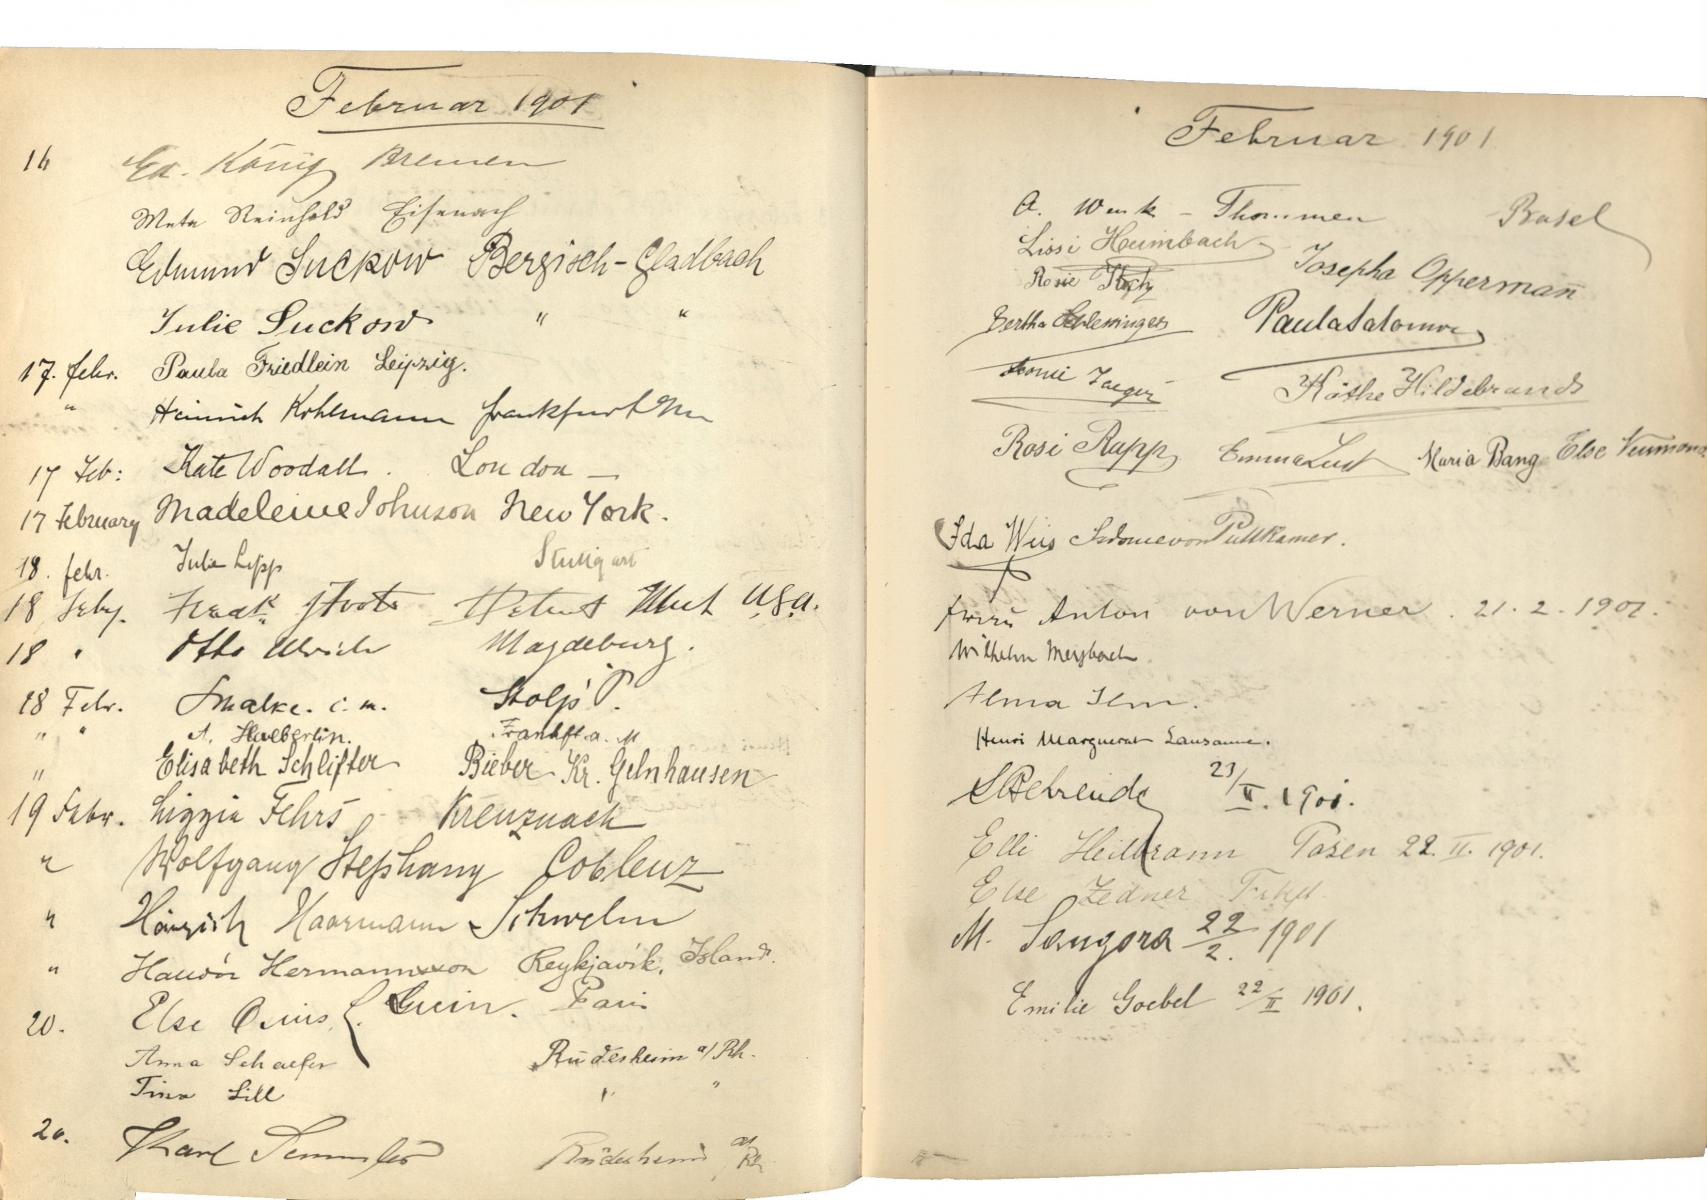 Februar 1901
16 Ed. König Bremen
Meta Reinhold Eisenach
Edmund Suckow Bergisch-Gladbach
Julie Suckow " "
17. febr. Paula Friedlein Leipzig.
" Heinrich Kohlmann Frankfurt
17 Feb: Kate Woodall. London —
17 February Madeleine Johnson New York.
18. febr. Julie Lipp Stuttgart
18 Feby. U.S.A.
18 " Otto Ulrich Magdeburg.
18 Febr. i. m. Stolp P.
" " A. Haeberlin. Frankft a. M
" Elisabeth Schlifter Bieber Kr. Gelnhausen
19 Febr. Lizzie Fehrs Kreuznach
" Wolfgang Stephany Coblenz
" Haarmann Schwelm
" Halldór Hermannsson Reykjavík, Island.
20. Else Paris
Anna Schaefer Rüdesheim a/Rh.
Tina Lill " "
20. Karl Semmler Rüdesheim a/Rh.
Februar 1901
A. Wenk - Thommen Basel
Lissi Heimbach
Josepha Oppermann
Rosie
Bertha Schlessinger Paula Salomon
Jaeger Käthe Hildebrandt
Rosi Rapp Emma Lust Maria Bang Else
Ida von Puttkamer.
Anton von Werner. 21.2.1901.
Wilhelm Meybach
Alma
Henri Marguerat Lausanne.
Behrendt 21/II. 1901.
Elli Heilbrann Posen 22. II. 1901.
Else Zedner Frkft
M. Sangora 22/2. 1901
Emilie Goebel 22/II 1901.